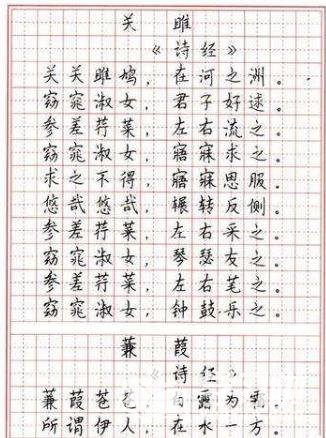 关雎
《诗经》
关关雎鸠，在河之洲。
窈窕淑女，君子好逑。
参差荇菜，左右流之。
窈窕淑女，寤寐求之。
求之不得，寤寐思服。
悠哉悠哉，辗转反侧。
参差荇菜，左右采之。
窈窕淑女，琴瑟友之。
参差荇菜，左右笔之。
窈窕淑女，钟鼓乐之。
蒹葭
《诗经》
蒹葭苍苍，白露为霜。
所谓伊人，在水一方